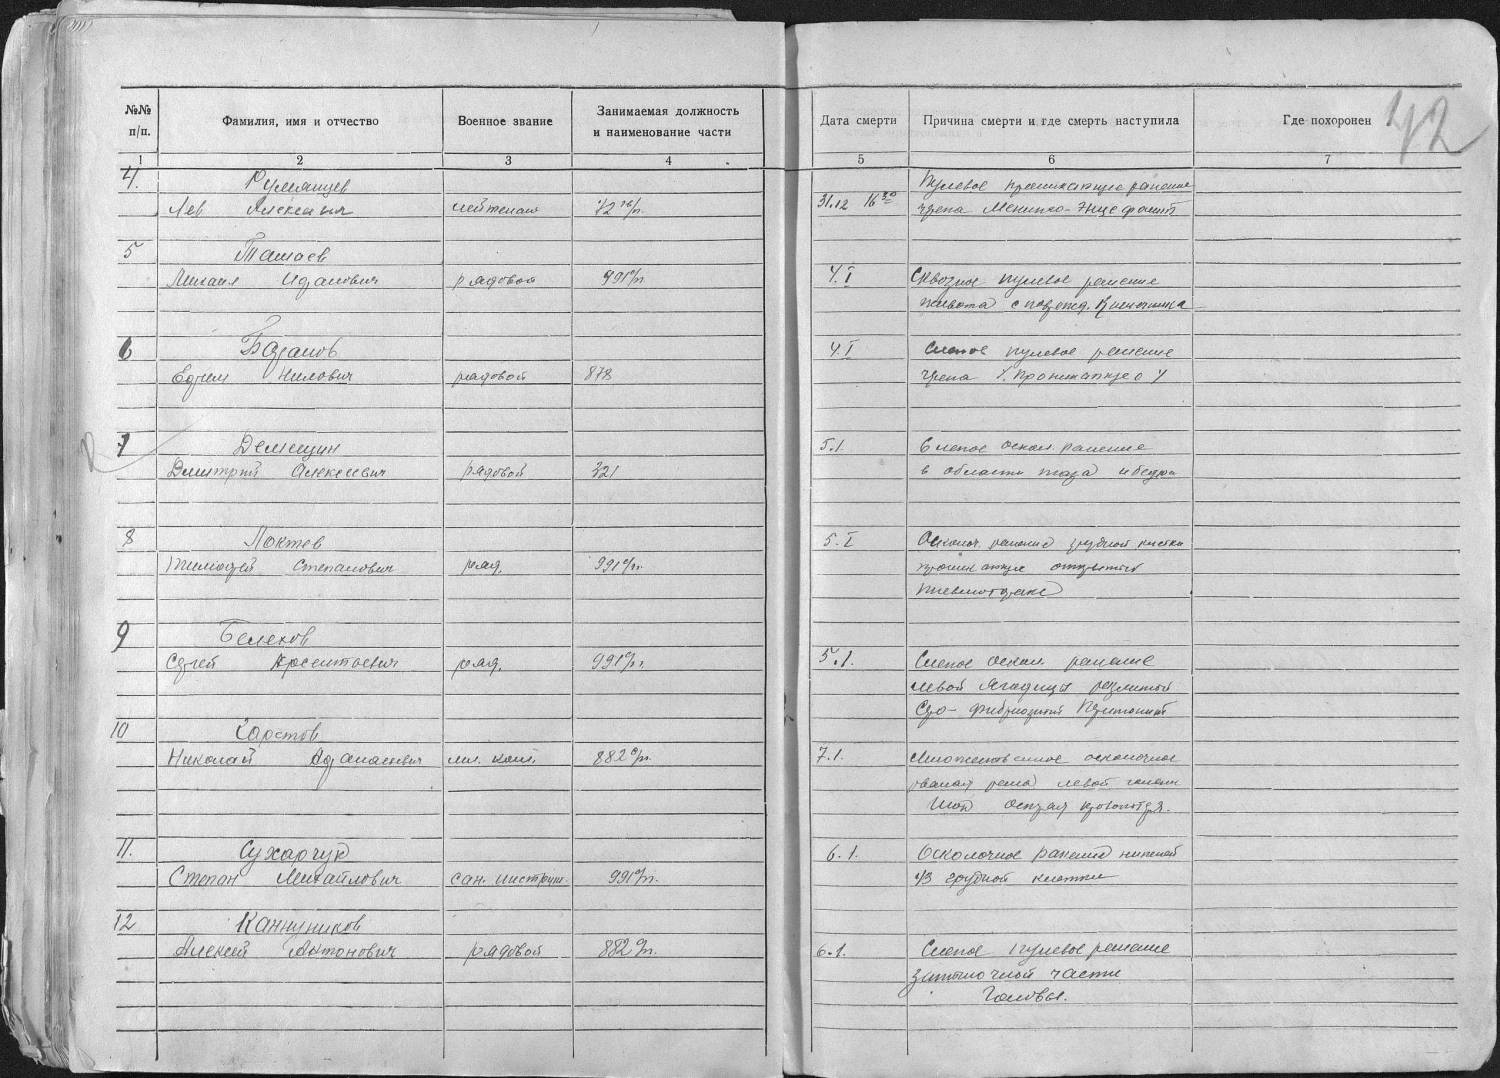 42
№№ п/п.
Фамилия, имя и отчество
Военное звание
Занимаемая должность и наименование части
Дата смерти
Причина смерти и где смерть наступила
Где похоронен
1 2 3 4 5 6 7
4. Румянцев
Пулевое проникающее ранение
Лев лейтенант 31.12 16 30 черепа
5 Ташаев
Михаил рядовой 991 с/п. 4.I Сквозное пулевое ранение
живота с кишечника
6 4.I Слепое пулевое ранение
Ефрем Нилович рядовой 878 черепа
7 Демешин 5.1. Слепое оскол. ранение
Дмитрий Алексеевич рядовой 321 в области таза и бедра
8 Локтев 5.I Осколоч. ранение грудной клетки
Тимофей Степанович ряд. 991 с/п.
пневмоторакс
9 Белеков
Сергей Арсентьевич ряд. 991 с/п. 5.1. Слепое оскол. ранение
левой ягодицы разлитой
перитонит
10
Николай Афанасьевич мл. ком. 882 с/п. 7.1. Множественное осколочное
рваная рана левой голени
Шок острая
11. Сухарчук 6.1. Осколочное ранение нижней
Степан Михайлович сан. инструк. 991 с/п. 1/3 грудной клетки
12 Каннуников
Алексей Антонович рядовой 882 с/п. 6.1. Слепое пулевое ранение
затылочной части
Головы.